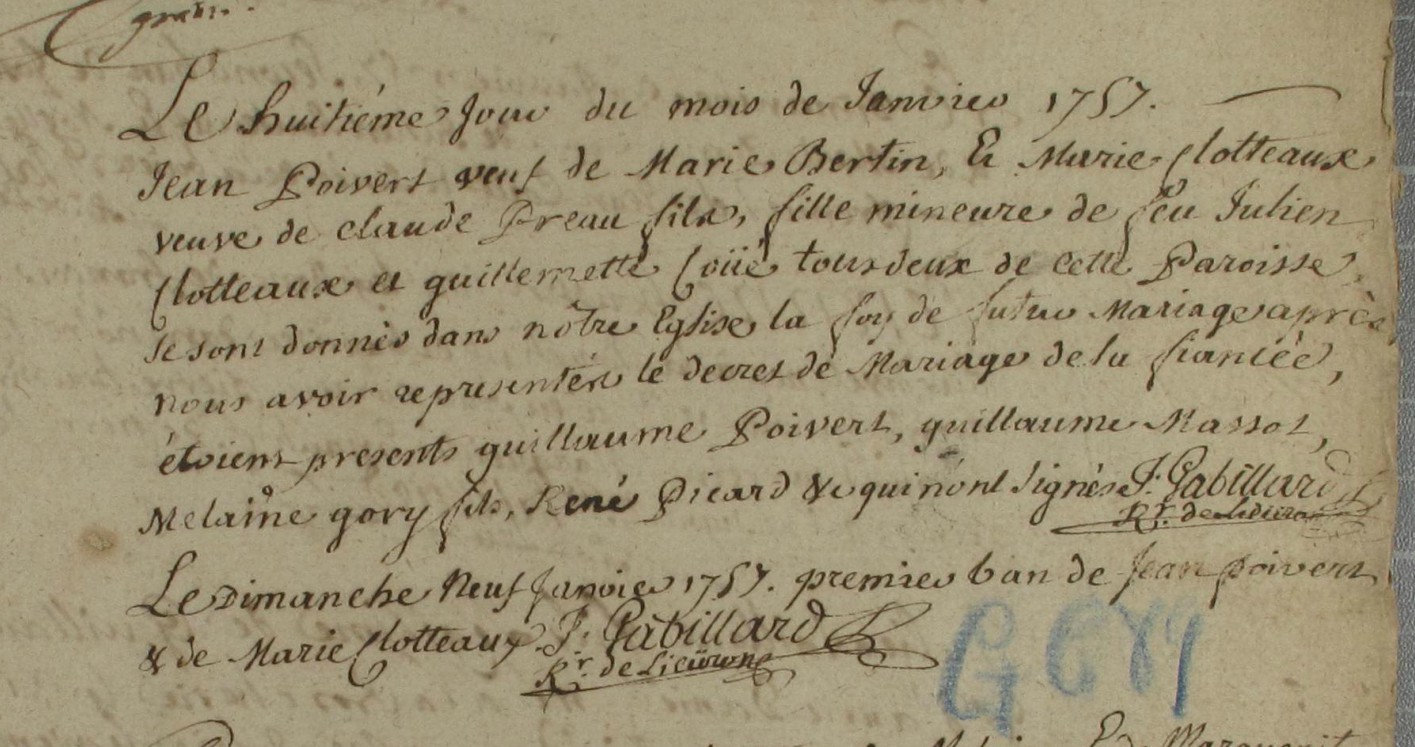 gratis.
Le huitiéme Jour du mois de Janvier 1757.
Jean Poivert veuf de Marie Bertin, Et Marie Clotteaux
veuve de claude Preau fils, fille mineure de feu Julien
Clotteaux et guillemette Coüé tous deux de cette Paroisse,
se sont donnés dans nôtre Eglise la foy de futur Mariage après
nous avoir representés le decret de Mariage de la fiancée,
étoient presents guillaume Poivert, guillaume Massot,
Melaine gory fils, René Picard &c qui n'ont signés J. Gabillard
Rr. de Lieuron
Le Dimanche Neuf Janvier 1757. premier ban de Jean poivert
& de Marie Clotteaux. J. Gabillard
Rr. de Lieüron